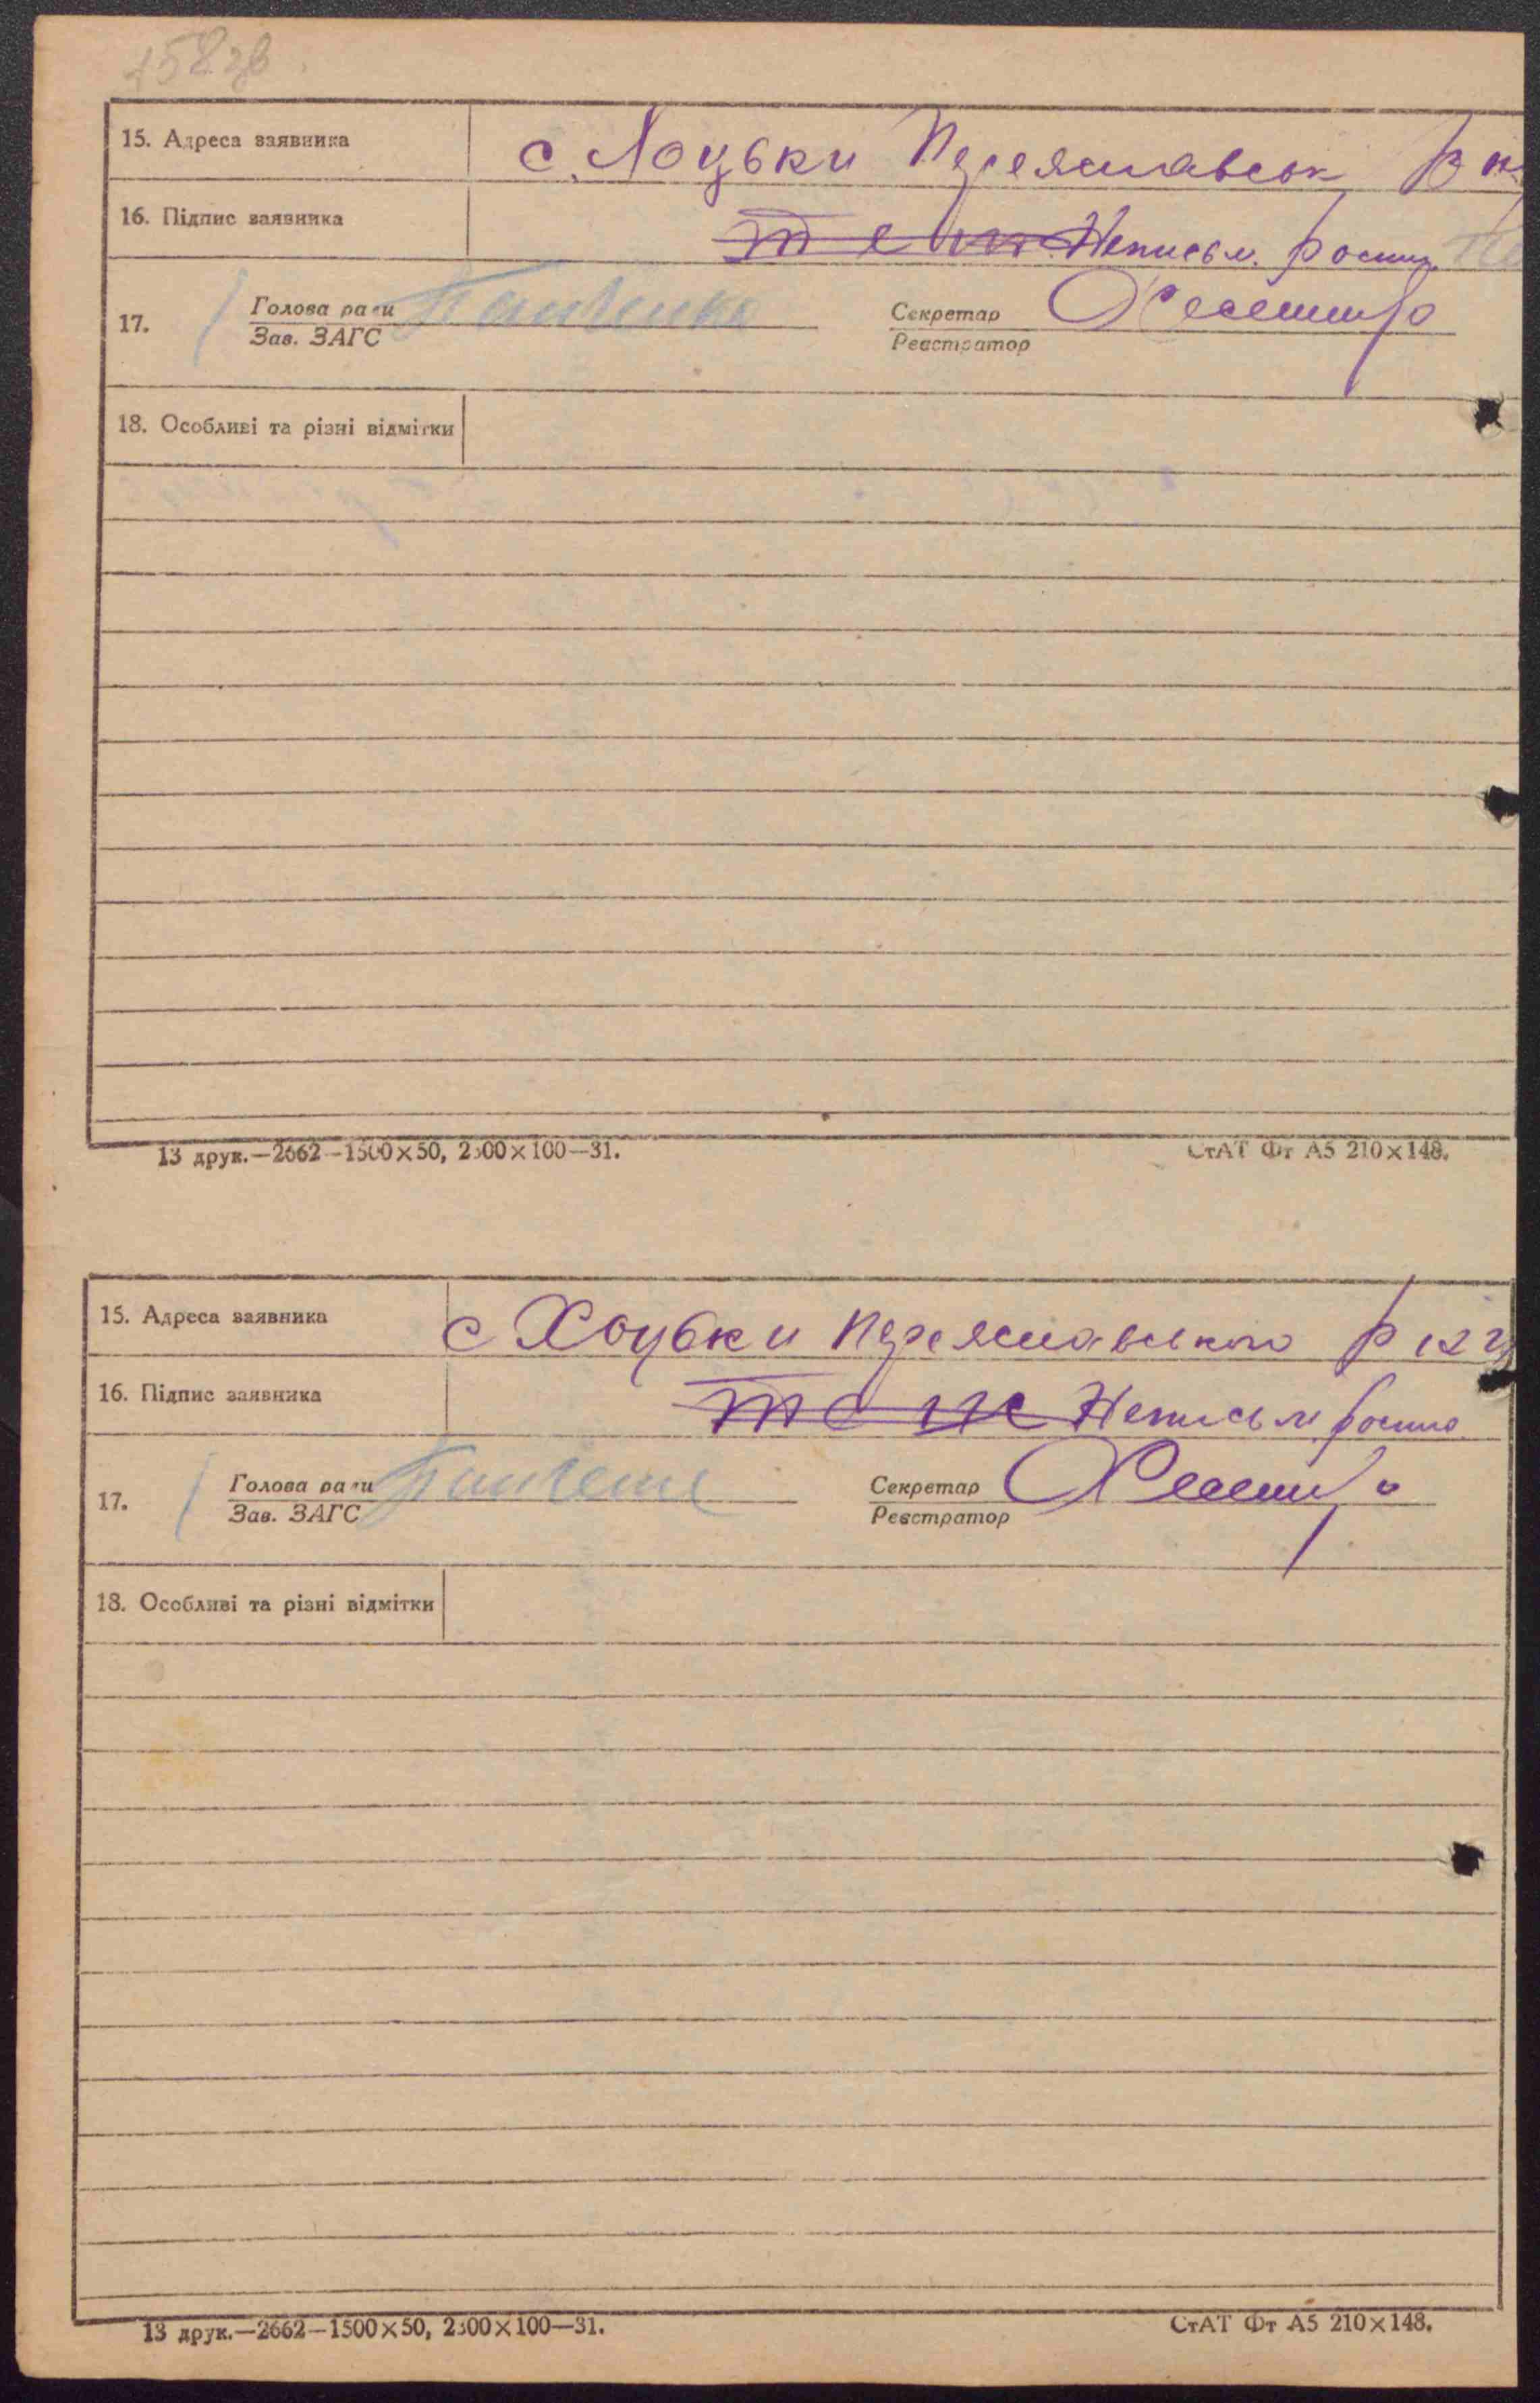 15. Адреса заявника с. Хоцьки Переяславськ
16. Підпис заявника Неписьм.
17. Голова ради Панченко Секретар
Зав. ЗАГС Реєстратор
18. Особливі та різні відмітки
13 друк.—2662—1500×50, 2300×100—31. СтАТ Фт А5 210×148.
15. Адреса заявника с Хоцьки Переяславського р
16. Підпис заявника Неписьм
17. Голова ради Секретар
Зав. ЗАГС Реєстратор
18. Особливі та різні відмітки
13 друк.—2662—1500×50, 2300×100—31. СтАТ Фт А5 210×148.